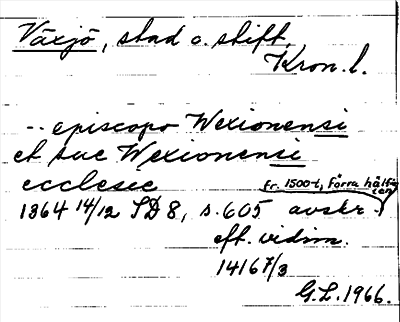 Växjö, stad o. stift.
Kron. l.
-- episcopo Wexionensi
et sue Wexionensi
ecclesie
fr. 1500-t, förra hälften
1364 14/12 SD 8, s. 605 avskr.
eft. vidim.
1416 7/3
G.L. 1966.